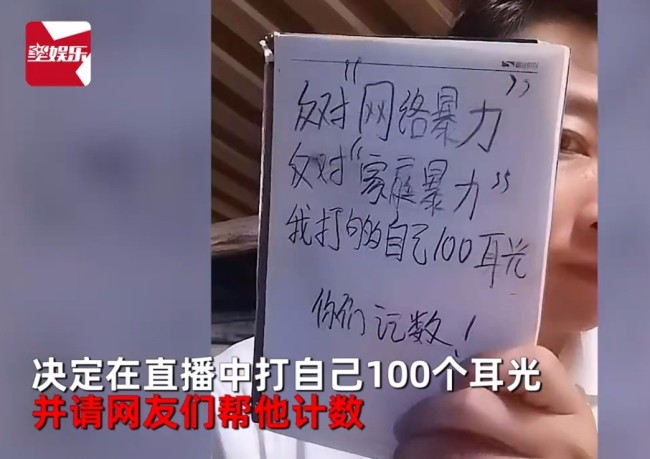 星娱乐
反对“网络暴力”
反对“家庭暴力”
我打够自己100耳光
你们记数！
决定在直播中打自己100个耳光
并请网友们帮他计数